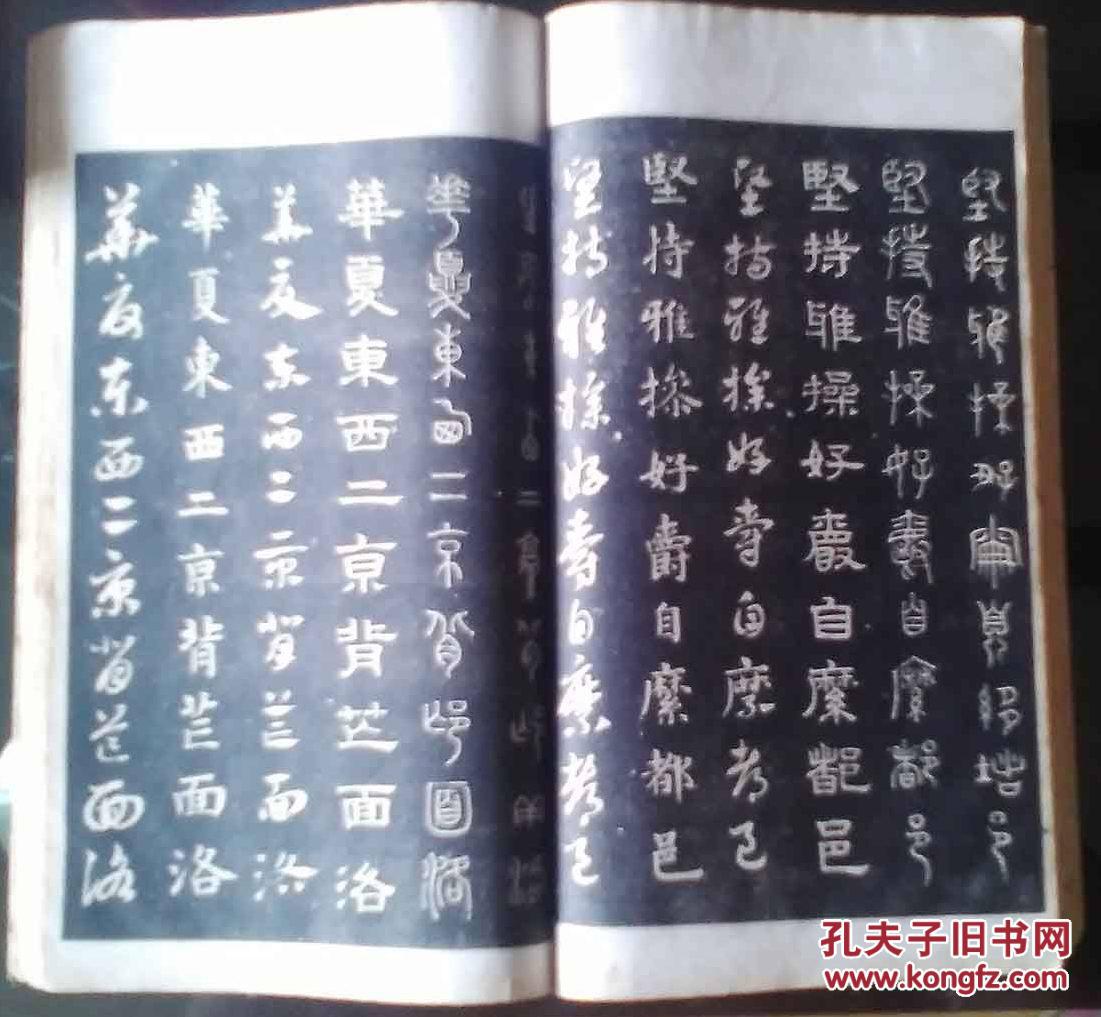 堅持雅操好爵自縻都邑
堅持雅操好爵自縻都邑
堅持雅操好爵自縻都邑
堅持雅操好爵自縻都邑
堅持雅操好爵自縻都邑
堅持雅操好爵自縻都邑
華夏東西二京背邙面洛
華夏東西二京背芒面洛
華夏東西二京背芒面洛
華夏東西二京背芒面洛
華夏東西二京背芒面洛
孔夫子旧书网
www.kongfz.com